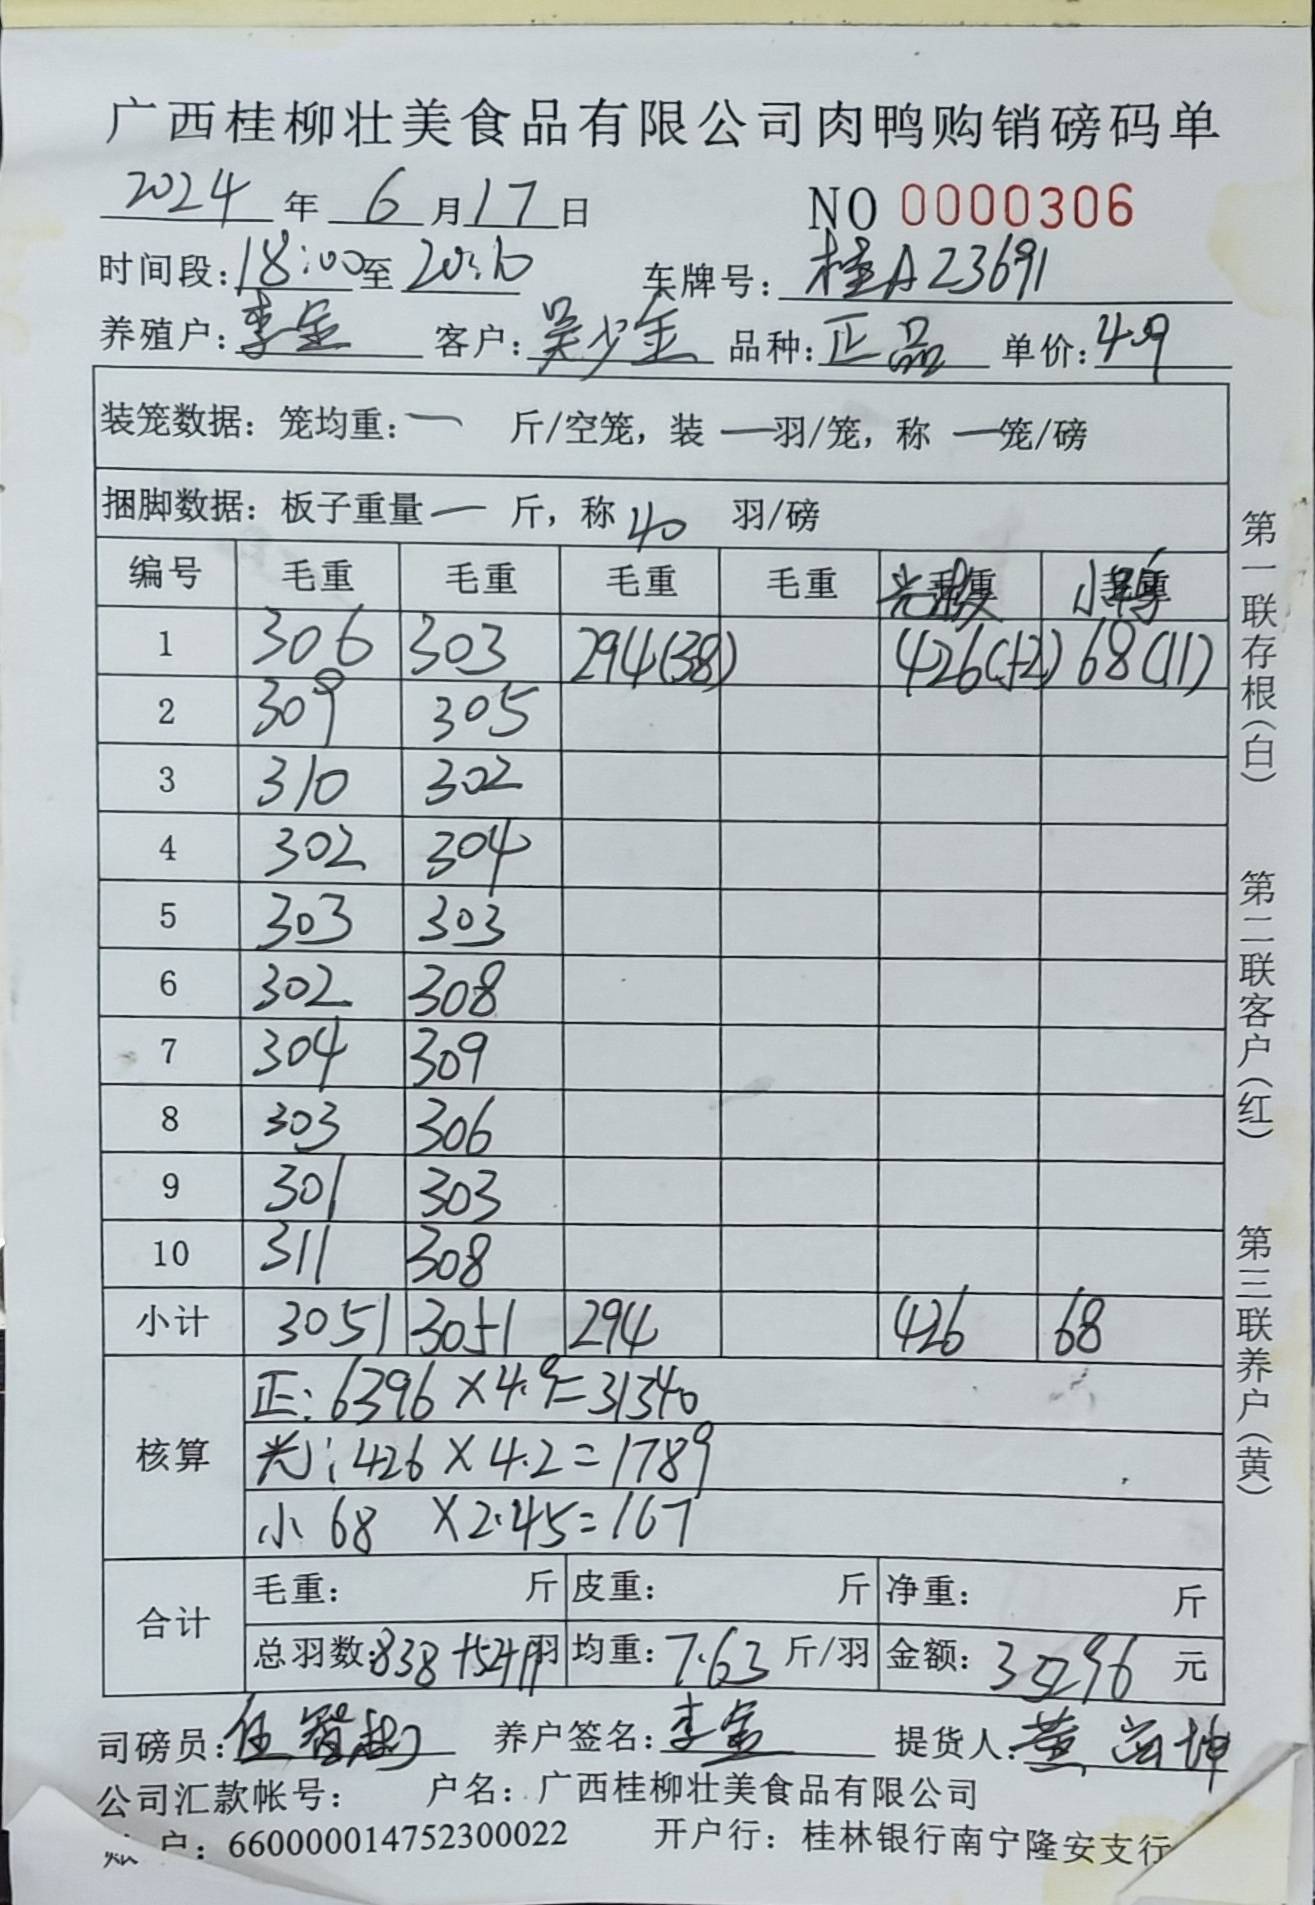 广西桂柳壮美食品有限公司肉鸭购销磅码单
2024 年 6 月 17 日 NO 0000306
时间段：18:00 至 20:10 车牌号：桂A23691
养殖户：李金 客户：吴少金 品种：正品 单价：4.9
装笼数据：笼均重：一 斤/空笼，装 一 羽/笼，称 一 笼/磅
捆脚数据：板子重量 一 斤，称 40 羽/磅
编号 毛重 毛重 毛重 毛重 光 小
1 306 303 294(38) 426 68(11)
2 309 305
3 310 302
4 302 304
5 303 303
6 302 308
7 304 309
8 303 306
9 301 303
10 311 308
小计 3051 3051 294 426 68
核算
正：6396×4.9=31340
光：426×4.2=1789
小 68 ×2.45=167
合计
毛重： 斤 皮重： 斤 净重： 斤
总羽数：838+ 羽 均重：7.63 斤/羽 金额：33296 元
司磅员： 养户签名：李金 提货人：黄
公司汇款帐号： 户名：广西桂柳壮美食品有限公司
户：660000014752300022 开户行：桂林银行南宁隆安支行
第一联存根（白）
第二联客户（红）
第三联养户（黄）